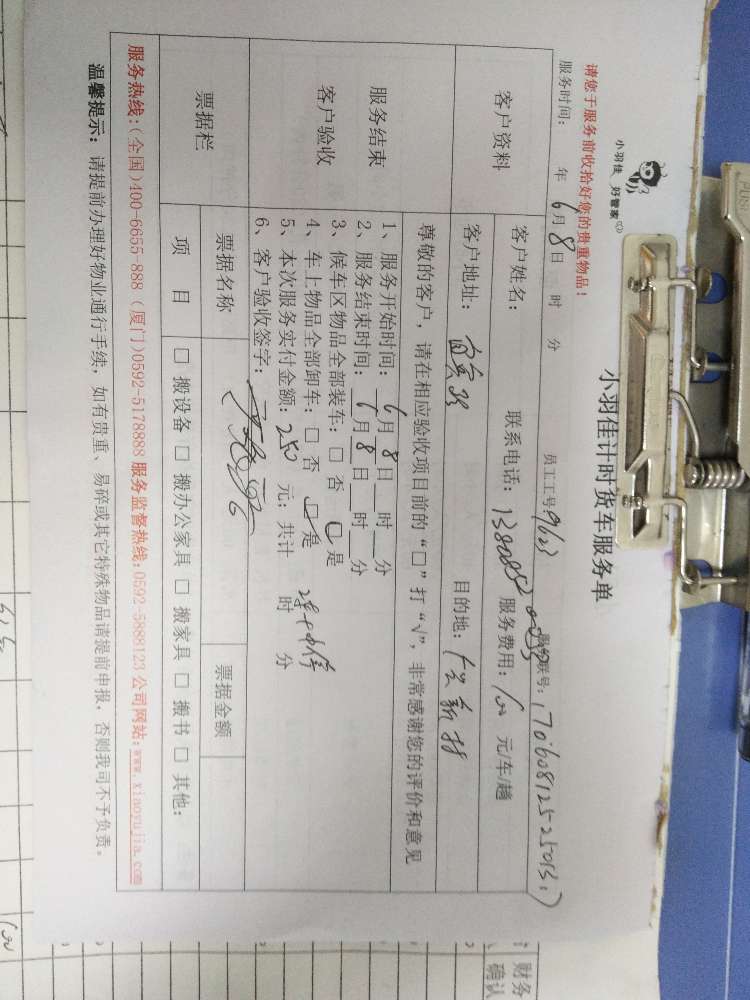 小羽佳 好管家
小羽佳计时货车服务单
请您于服务前收拾好您的贵重物品！
服务时间： 年 6月8日 时 分 员工工号：9623 联号：170608125225013
客户资料
客户姓名： 联系电话： 服务费用： 元/车/趟
客户地址： 目的地：
服务结束
客户验收
尊敬的客户，请在相应验收项目前的“□”打“√”，非常感谢您的评价和意见
1、服务开始时间：6月8日 时 分
2、服务结束时间：6月8日 时 分
3、候车区物品全部装车：□ 否 □ 是
4、车上物品全部卸车：□ 否 □ 是
5、本次服务实付金额：250 元；共计 时 分
6、客户验收签字：
票据栏
票据名称 票据金额
项 目 □ 搬设备 □ 搬办公家具 □ 搬家具 □ 搬书 □ 其他：
服务热线：(全国)400-6655-888（厦门)0592-5178888 服务监督热线：0592-5888123 公司网站：www.xiaoyujia.com
温馨提示：请提前办理好物业通行手续，如有贵重、易碎或其它特殊物品请提前申报，否则我司不予负责。
财务
确认